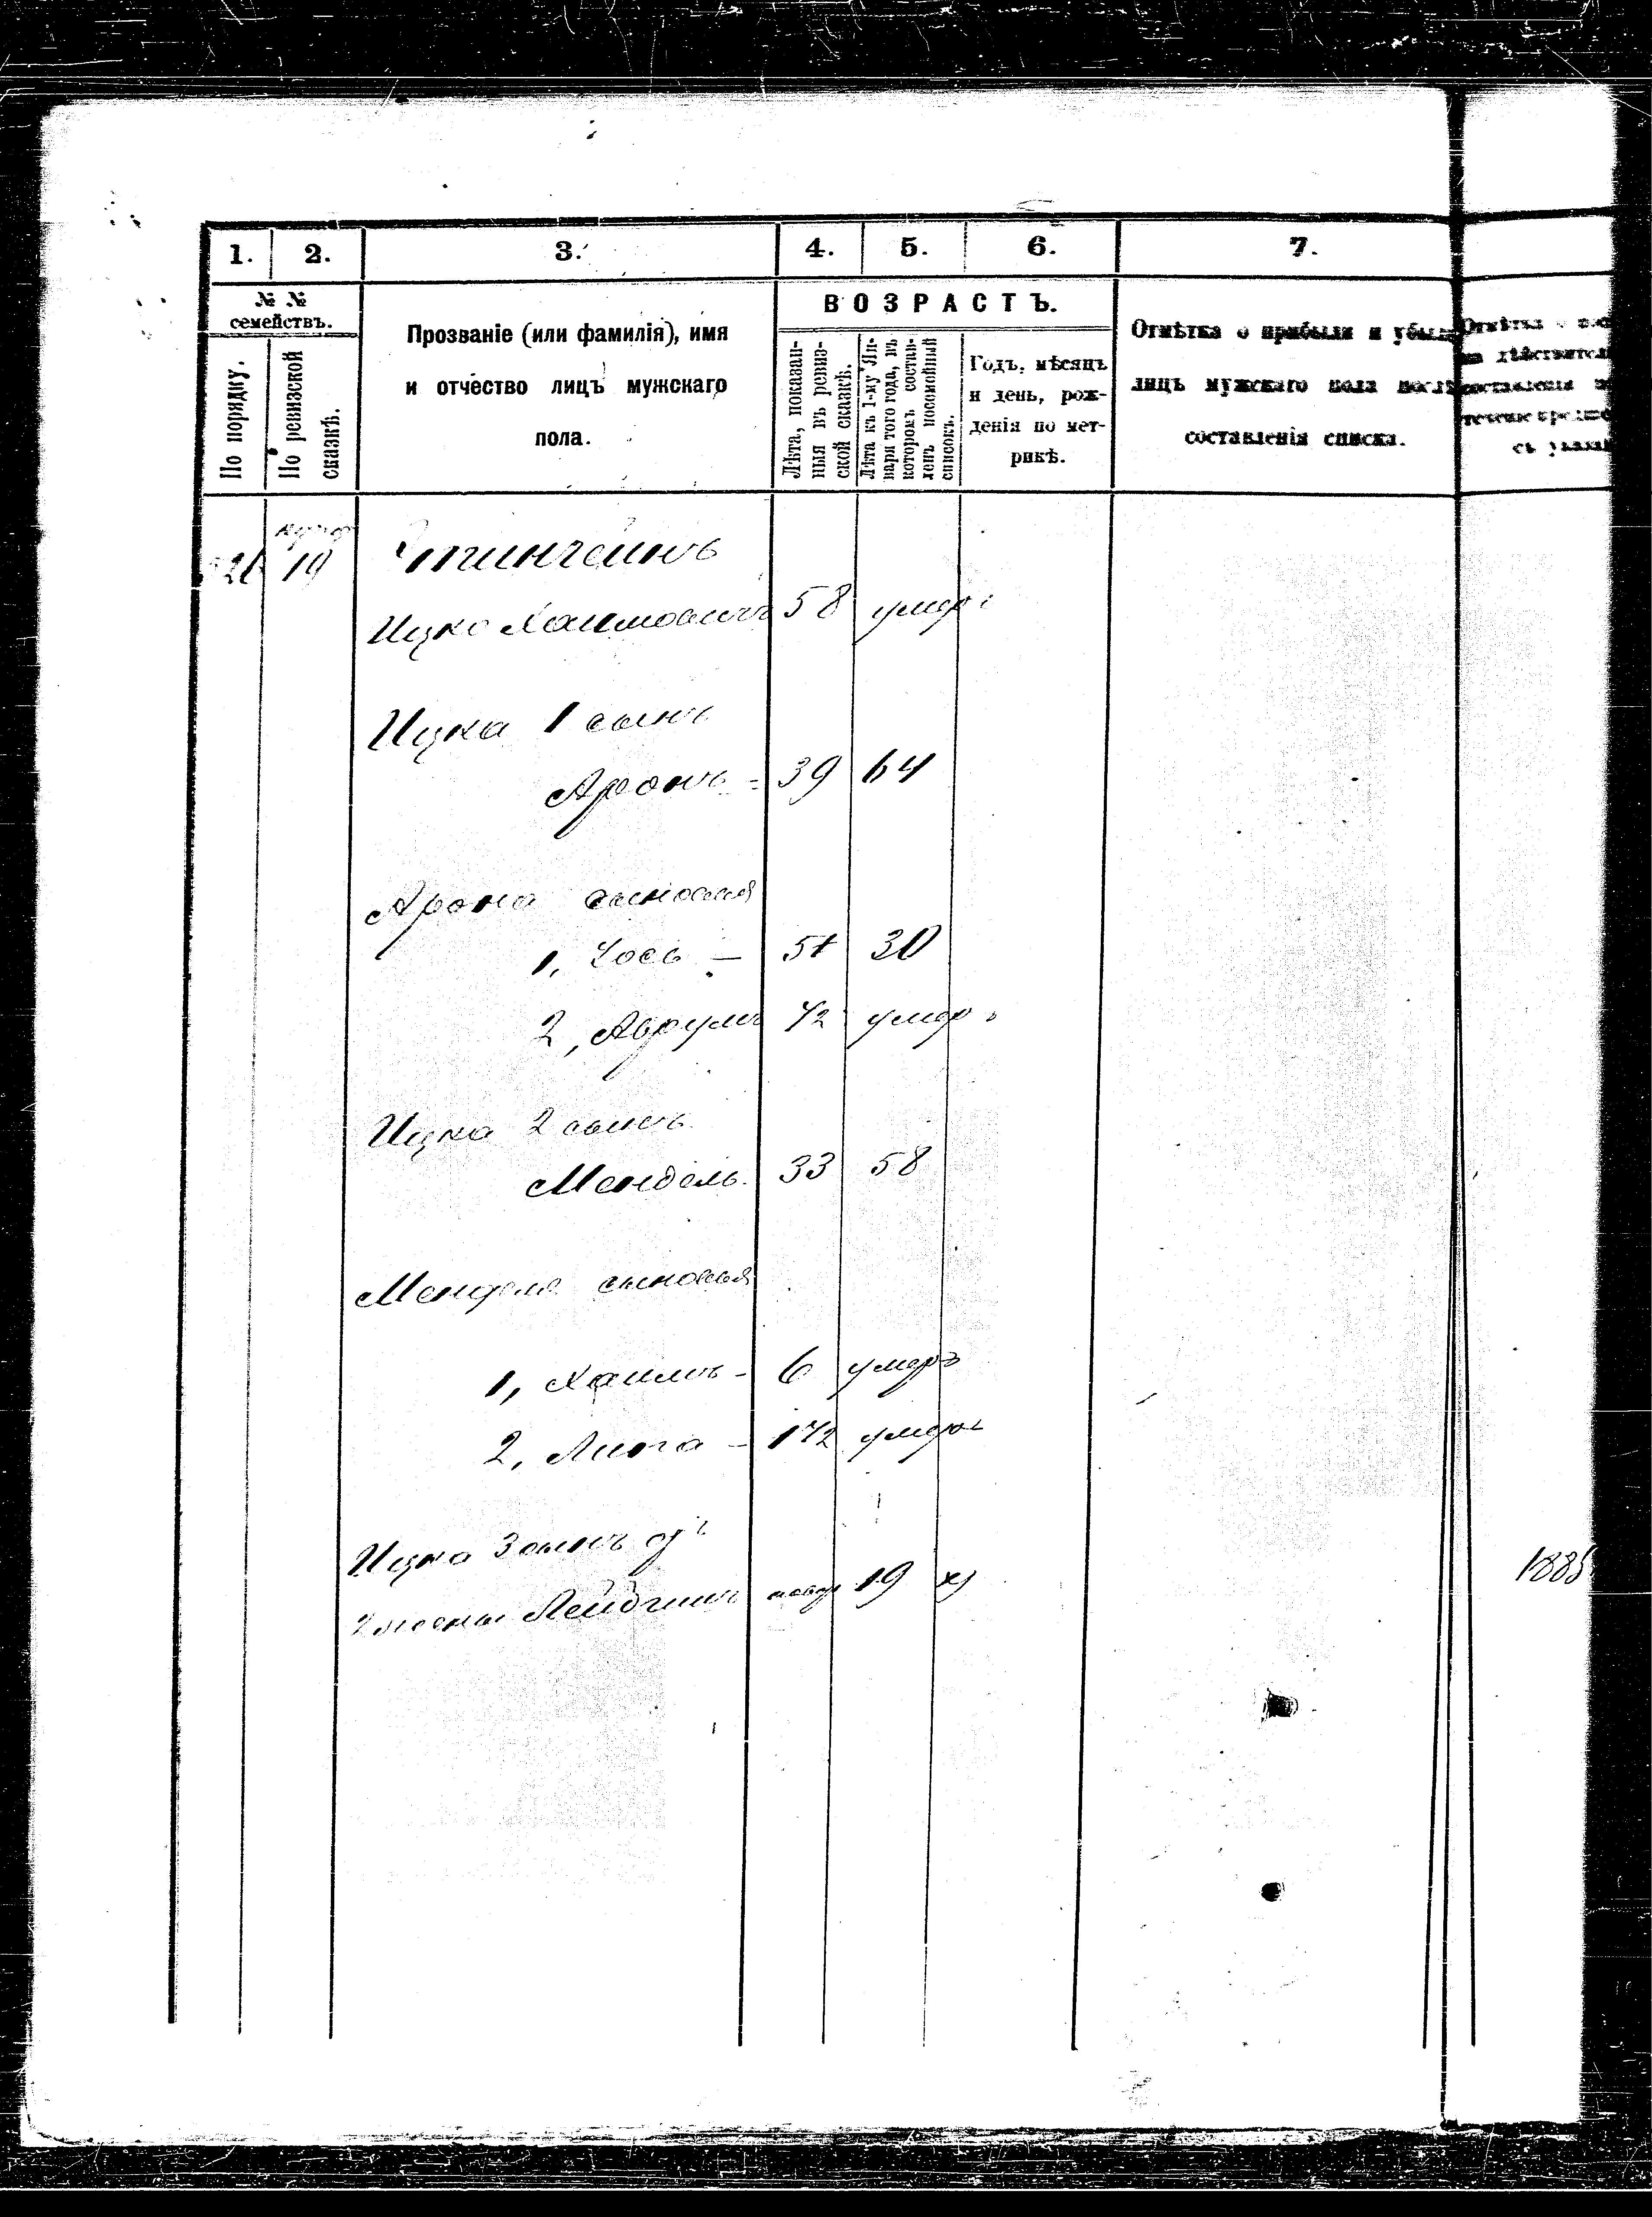 1. 2. 3. 4. 5. 6. 7.
№ №
семействъ.
По порядку.
По ревизской
сказкѣ.
Прозваніе (или фамилія), имя
и отчество лицъ мужскаго
пола.
ВОЗРАСТЪ.
Лѣта, показан-
ныя въ ревиз-
ской сказкѣ.
Лѣта къ 1-му Ян-
варя того года, въ
которомъ состав-
ленъ посемейный
списокъ.
Годъ, мѣсяцъ
и день, рож-
денія по мет-
рикѣ.
Отмѣтка о прибыли и убыли
лицъ мужскаго пола послѣ
составленія списка.
Отмѣтка о
составленія
съ указан
19
Ицко Хаимовичъ 58 умеръ
Ицка 1 сынъ
Аронъ - 39 64
Арона сыновья
1, Іось - 30
2, Аврумъ 1/2 умеръ
Ицка 2 сынъ
Мендель. 33 58
Менделя сыновья
1, Хаимъ - 6 умеръ
2, - 1 1/2 умеръ
Ицка 3 сынъ отъ
2 жены 19
1885